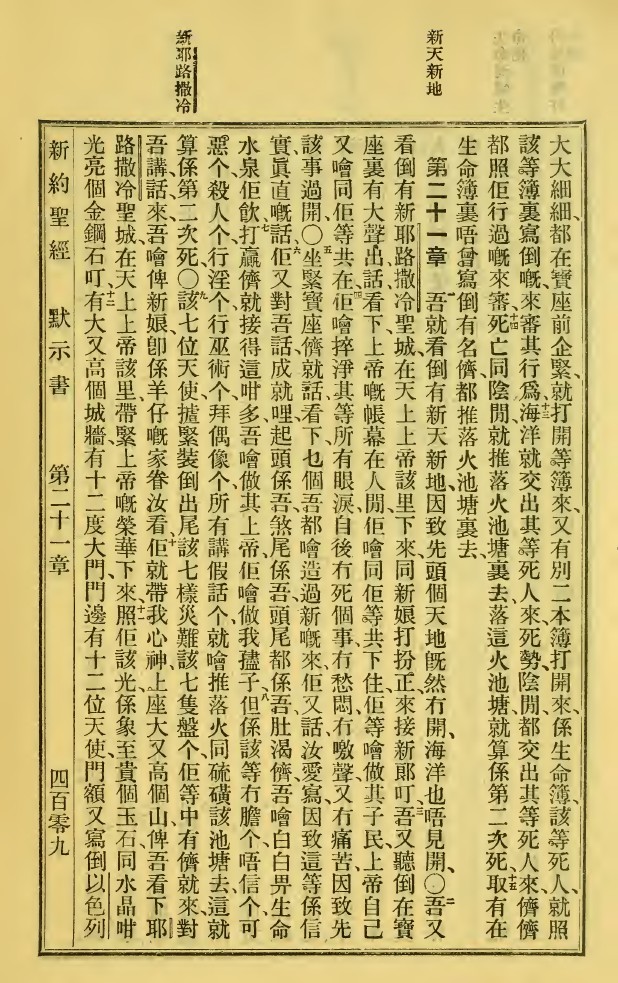 新天新地
新耶路撒冷
大大細細都在寶座前企緊、就打開等簿來、又有別二本簿打開來、係生命簿、該等死人、就照
該等簿裏寫倒嘅來審其行爲、十三海洋就交出其等死人來、死勢陰間都交出其等死人來、儕儕
都照佢行過嘅來審、十四死亡同陰間、就推落火池塘裏去、落這火池塘、就算係第二次死、十五取有在
生命簿裏唔曾寫倒有名儕、都推落火池塘裏去、
第二十一章 一吾就看倒有新天新地、因致先頭個天地既然冇開、海洋也唔見開、〇二吾又
看倒有新耶路撒冷聖城、在天上上帝該里下來、同新娘打扮正來接新郎叮、三吾又聽倒在寶
座裏有大聲出話、看下上帝嘅帳幕在人間、佢噲同佢等共下住、佢等噲做其子民、上帝自己
又噲同佢等共在、四佢噲捽淨其等所有眼淚、自後冇死個事、冇愁悶、冇噭聲、又冇痛苦、因致先
該事過開、〇五坐緊寶座儕就話、看下乜個吾都噲造過新嘅來、佢又話、汝愛寫、因致這等係信
實眞直嘅話、六佢又對吾話、成就哩、起頭係吾、煞尾係吾、頭尾都係吾、肚渴儕、吾噲白白畀生命
水泉佢飮、七打贏儕就接得這咁多、吾噲做其上帝、佢噲做我孻子、八但係該等冇膽个、唔信个、可
惡个、殺人个、行淫个、行巫術个、拜偶像个、所有講假話个、就噲推落火同硫磺該池塘去、這就
算係第二次死、〇九該七位天使、㨿緊裝倒出尾該七樣災難該七隻盤个、佢等中有儕就來對
吾講話、來、吾噲俾新娘、卽係羊仔嘅家眷汝看、十佢就帶我心神、上座大又高個山、俾吾看下耶
路撒冷聖城、在天上上帝該里、帶緊上帝嘅榮華下來、十一照佢該光係象至貴個玉石、同水晶咁
光亮個金鋼石叮、十二有大又高個城牆、有十二度大門、門邊有十二位天使、門額又寫倒以色列
新約聖經 默示書 第二十一章 四百零九